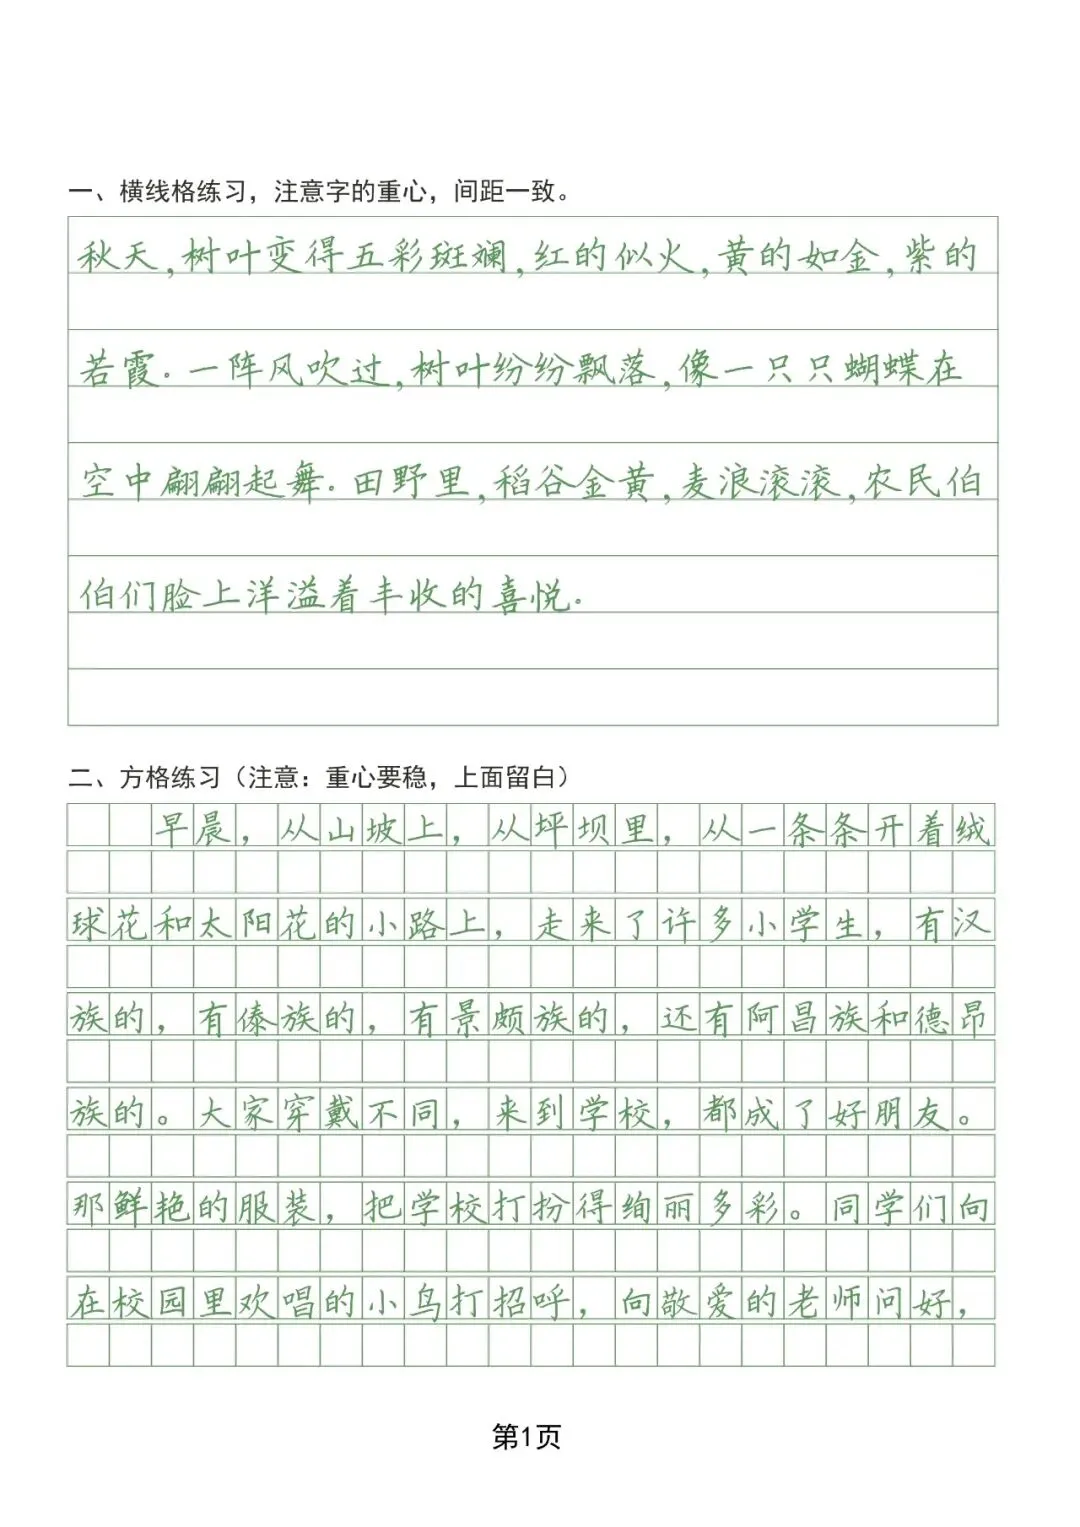 一、横线格练习，注意字的重心，间距一致。
秋天,树叶变得五彩斑斓,红的似火,黄的如金,紫的
若霞.一阵风吹过,树叶纷纷飘落,像一只只蝴蝶在
空中翩翩起舞.田野里,稻谷金黄,麦浪滚滚,农民伯
伯们脸上洋溢着丰收的喜悦.
二、方格练习（注意：重心要稳，上面留白）
早晨，从山坡上，从坪坝里，从一条条开着绒
球花和太阳花的小路上，走来了许多小学生，有汉
族的，有傣族的，有景颇族的，还有阿昌族和德昂
族的。大家穿戴不同，来到学校，都成了好朋友。
那鲜艳的服装，把学校打扮得绚丽多彩。同学们向
在校园里欢唱的小鸟打招呼，向敬爱的老师问好，
第1页